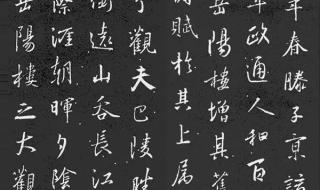 年春滕子京謫
年政通人和百
岳陽樓增其舊
賦於其上属
予觀夫巴陵勝
銜遠山吞長江
際涯朝暉夕陰
岳陽樓之大觀